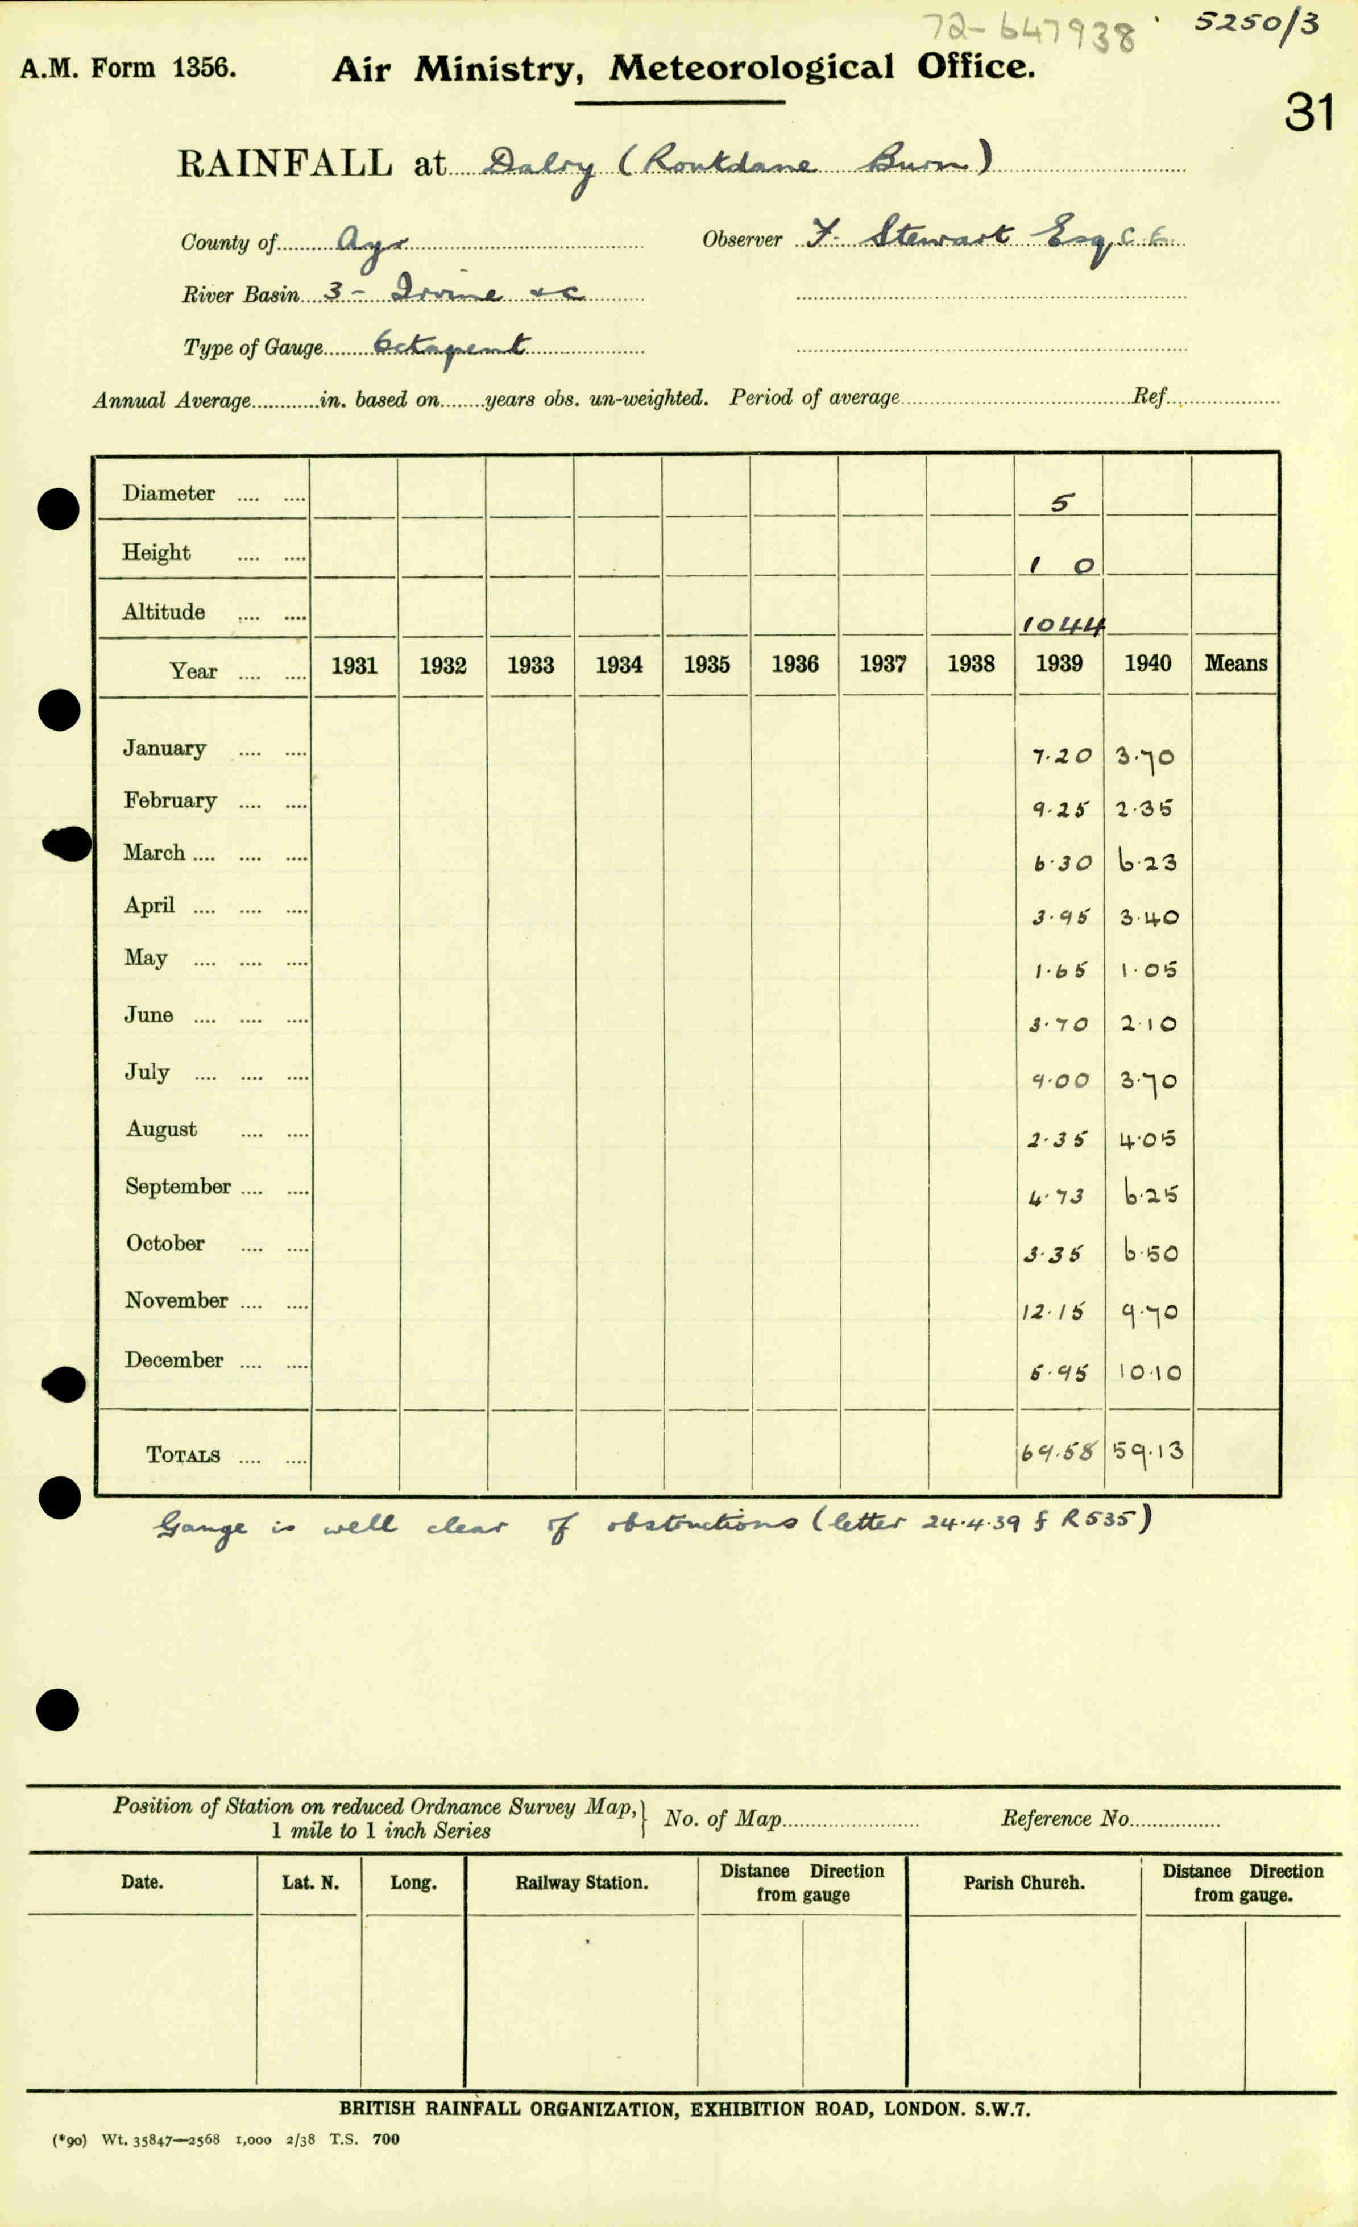 72-647938 5250/3
A.M. Form 1356. Air Ministry, Meteorological Office.
31
RAINFALL at Dalry (Routdane Burn)
County of Ayr Observer F. Stewart Esq, C.E.
River Basin 3 - Irvine &c
Type of Gauge Octapent
Annual Average in. based on years obs. un-weighted. Period of average Ref.
Diameter 5
Height 1 0
Altitude 1044
Year 1931 1932 1933 1934 1935 1936 1937 1938 1939 1940 Means
January 7.20 3.70
February 9.25 2.35
March 6.30 6.23
April 3.95 3.40
May 1.65 1.05
June 3.70 2.10
July 9.00 3.70
August 2.35 4.05
September 4.73 6.25
October 3.35 6.50
November 12.15 9.70
December 5.95 10.10
TOTALS 69.58 59.13
Gauge is well clear of obstructions (letter 24.4.39 f R535)
Position of Station on reduced Ordnance Survey Map, } No. of Map Reference No.
1 mile to 1 inch Series
Date. Lat. N. Long. Railway Station. Distance Direction from gauge Parish Church. Distance Direction from gauge.
BRITISH RAINFALL ORGANIZATION, EXHIBITION ROAD, LONDON. S.W.7.
(*90) Wt. 35847—2568 1,000 2/38 T.S. 700